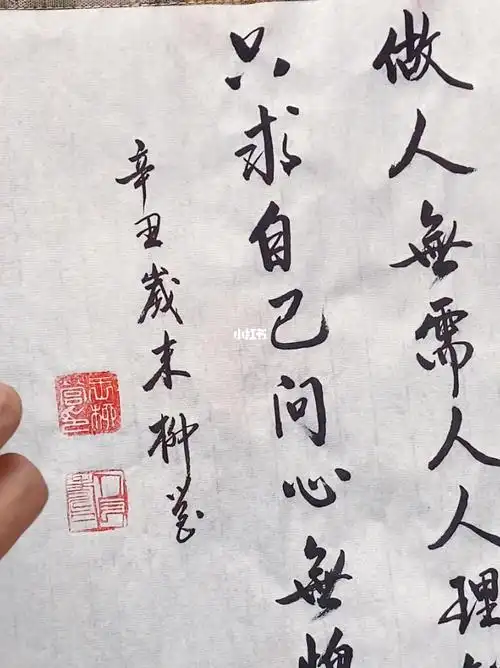 做人無需人人理
只求自己問心無愧
辛丑歲末柳
小红书